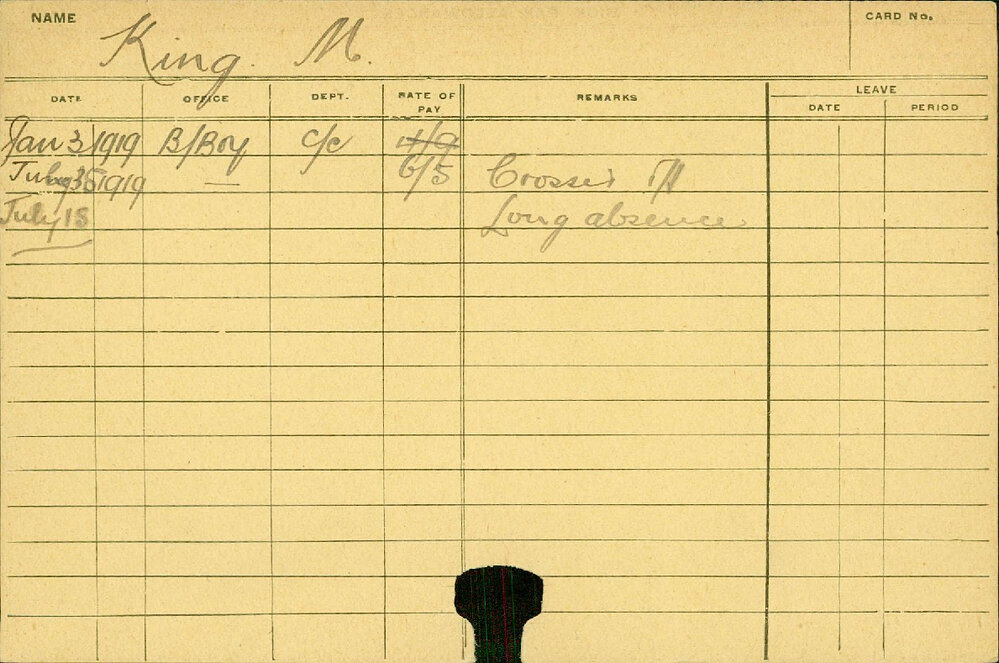 NAME King. M. CARD No.
DATE OFFICE DEPT. RATE OF PAY REMARKS LEAVE
DATE PERIOD
Jan 3 1919 B/Boy C/C
July 1919 — 6/5
July 15 Long absence